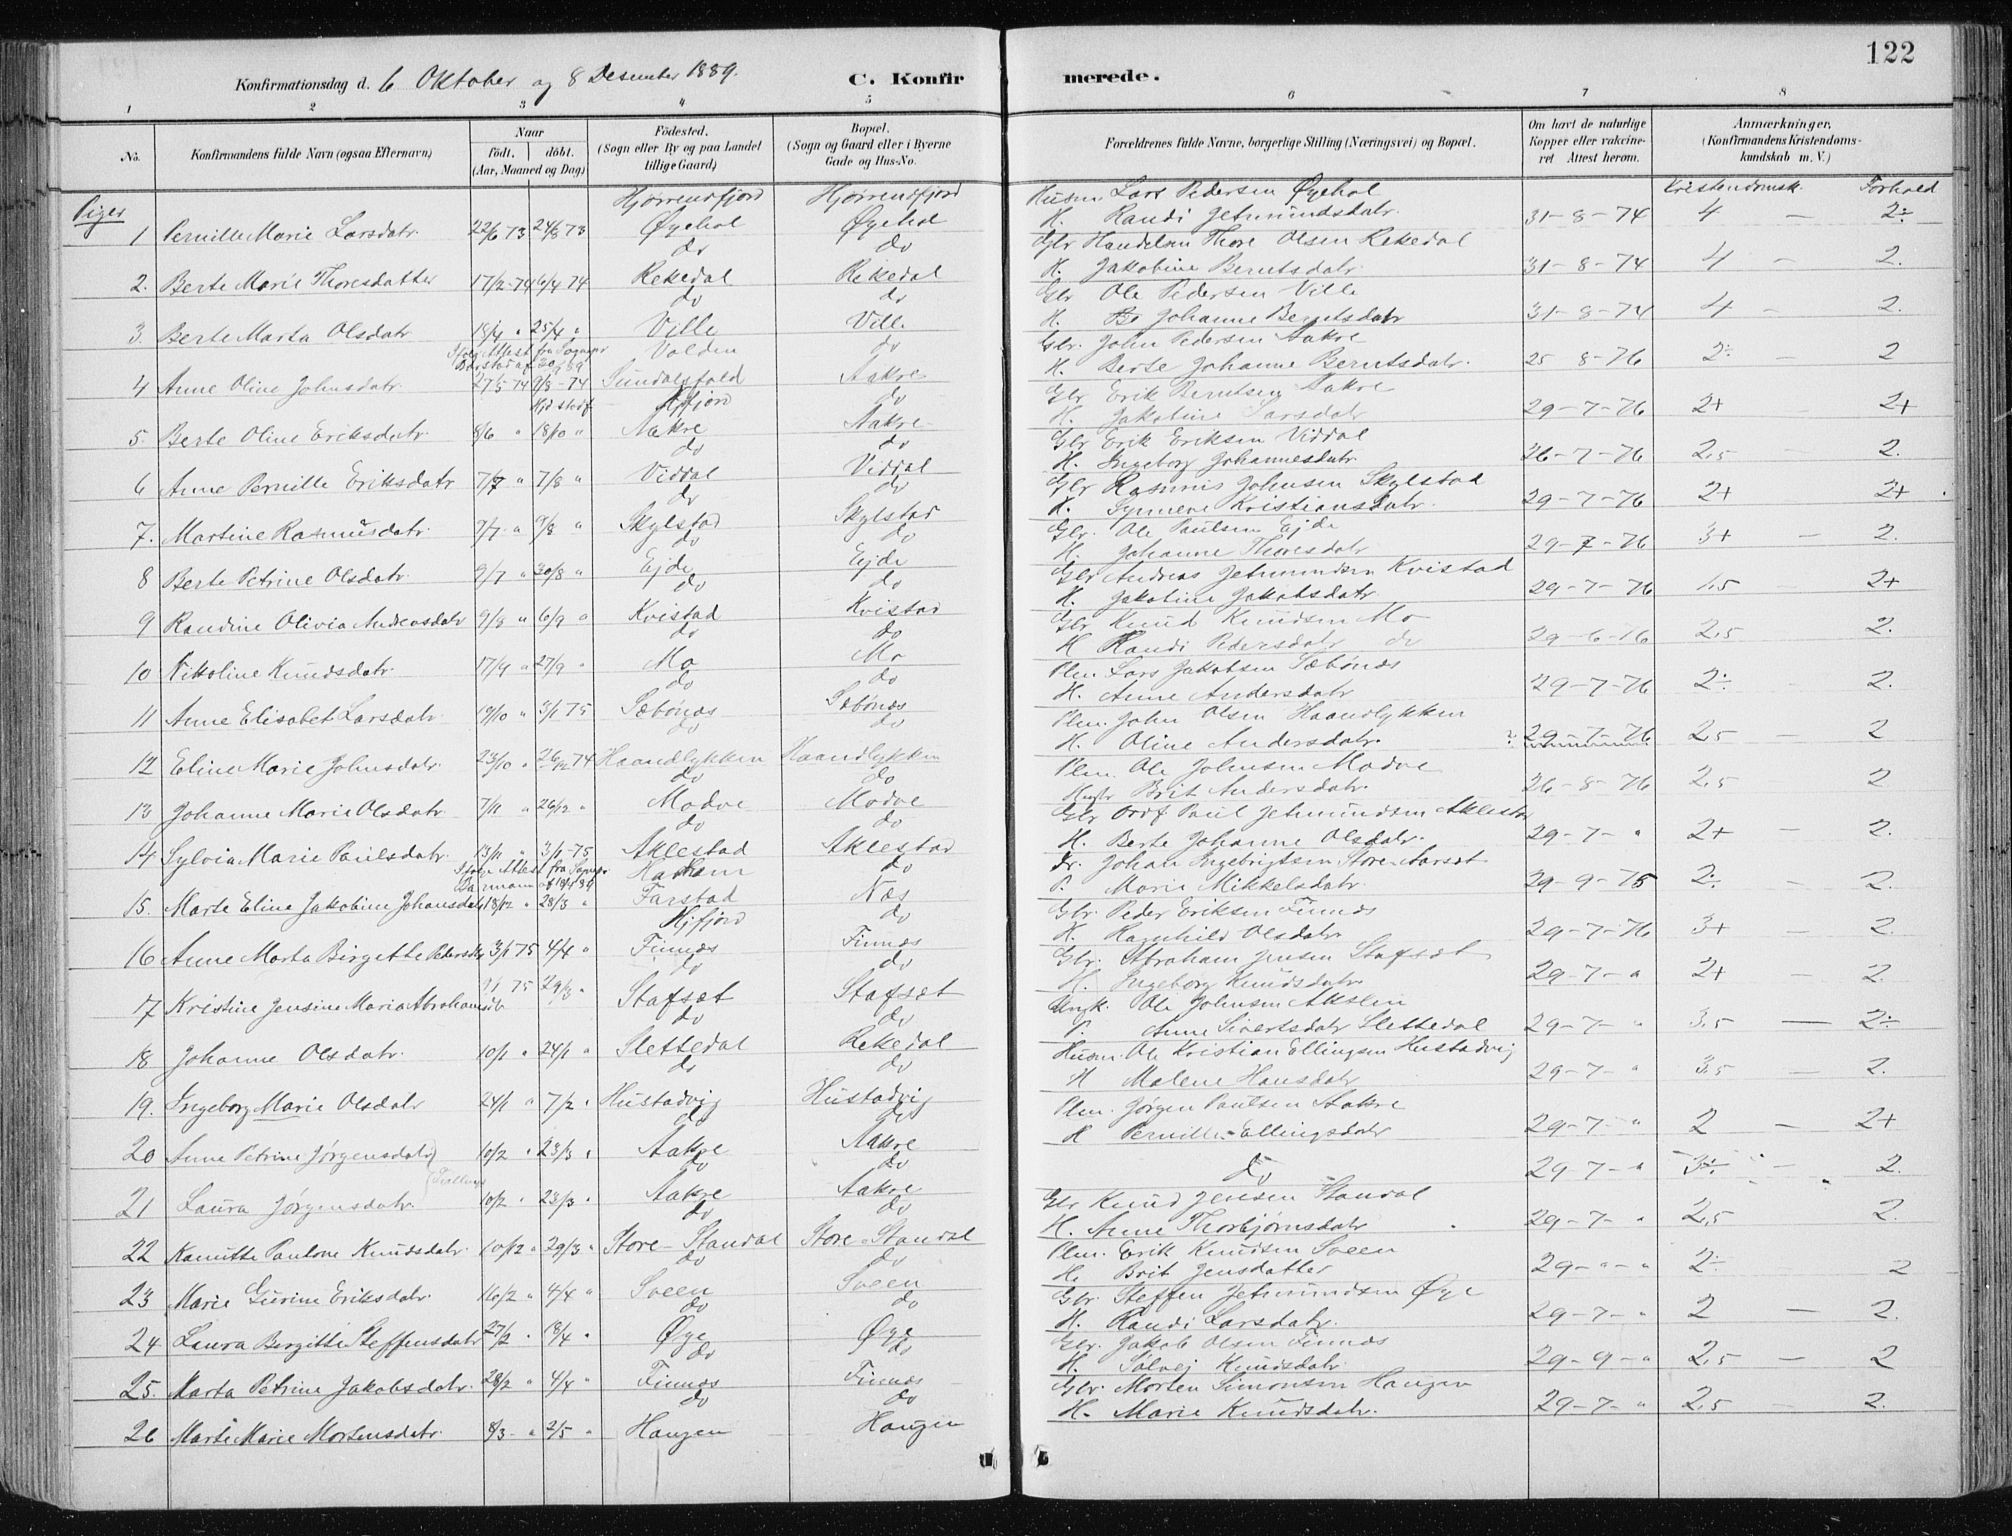 122
Konfirmationsdag d. 6 Oktober og 8 Desember 1889. C. Konfir merede.
1 2 3 4 5 6 7 8
No. Konfirmandens fulde Navn (ogsaa Efternavn) Naar födt. döbt. (Aar, Maaned og Dag) Födested. (Sogn eller By og paa Landet tillige Gaard) Bopæl. (Sogn og Gaard eller i Byerne Gade og Hus-No. Forældrenes fulde Navne, borgerlige Stilling (Næringsvei) og Bopæl. Om havt de naturlige Kopper eller vakcineret Attest herom. Anmærkninger, (Konfirmandens Kristendomskundskab m. V.)
Piger Hjörrendfjord Hjörrendfjord Kristendomsk. Forhold
Husm. Lars Pedersen Øyehol
1 Pernille Marie Larsdatr. 22/6 73 24/8 73 Øyehol Øyehol H. Randi Jetmundsdatr. 31-8-74 4 - 2÷
do do Gbr Handelsm Thore Olsen Rekedal
2. Berte Marie Thoresdatter 17/2-74 6/4 74 Rekedal Rekedal H. Jakobine Berntsdatr. 31-8-74 4 - 2.
do do Gbr Ole Pedersen Ville
3. Berte Marta Olsdatr 18/4 " 25/4 " Ville Ville H. Johanne Berntsdatr 31-8-74 4 - 2.
Volden do Gbr. John Pedersen Aakre
4 Anne Oline Johnsdatr. 27/5 74 9/8-74 Sundalsfold Aakre H. Berte Johanne Berntsdatr. 25 8-76 2÷ - 2
Hjfjord do Gbr Erik Berntsen Aakre
5. Berte Oline Eriksdatr. 8/6 " 18/10 " Aakre Aakre H. Jakobine Larsdatr 29-7-76 2+ - 2+
do do Gbr Erik Eriksen Viddal
6 Anne Pernille Eriksdatr 7/7 " 7/8 " Viddal Viddal H. Ingeborg Johannesdatr. 26-7-76 2,5 - 2.
do do Gbr Rasmus Johnsen Skylstad
7. Martine Rasmusdatr. 7/7 " 9/8 " Skylstad Skylstad H. Synneve Kristiansdatr. 29-7-76 2+ - 2+
do do Gbr. Ole Paulsen Ejde
8 Berte Petrine Olsdatr. 9/7 " 30/8 " Ejde Ejde H. Johanne Thoresdatr 29-7-76 3+ - 2.
do do Gbr Andreas Jetmundsen Kvistad
9 Randine Olivia Andreasdatr 9/8 " 6/9 " Kvistad Kvistad H. Jakobine Jakobsdatr 29-7-76 1.5 - 2+
do do Gbr Knud Knudsen Mo
10 Nikoline Knudsdatr. 17/9 " 27/9 " Mo Mo H Randi Pedersdatr do 29-6-76 2,5 - 2.
do do Plm. Lars Jakobsen Sæbönæs
11 Anne Elisabet Larsdatr. 19/10 " 3/1 75 Sæbönæs Sæbönæs H. Anne Andersdatr 29-7-76 2÷ - 2.
do do Plm. John Olsen Haandlykken
12 Eline Marie Johnsdatr. 23/10 " 26/12 74 Haandlykken Haandlykken H. Oline Andersdatr. 29-7-76 2,5 - 2
do do Plm. Ole Johnsen Modve
13 Johanne Marie Olsdatr 7/11 " 26/12 " Modve Modve Brit Andersdatr. 26-8-76 2,5 2
do do Gbr Ordf Paul Jetmundsen Aklestad
14 Sylvia Marie Paulsdatr. 13/11 " 3/1-75 Aklestad Aklestad H. Berte Johanne Olsdatr. 29-7- " 2+ - 2.
do Johan Ingebrigtsen Store-Aarset
15. Marte Eline Jakobine Johansdatr 18/12 " 28/3 " Farstad Næs P. Marie Mikkelsdatr. 29-9-75 2÷ - 2.
Hjfjord do Gbr. Peder Eriksen Finnæs
16 Anne Marta Birgitte Pedersdtr 3/1 75 4/4 " Finnæs Finnæs H. Ragnhild Olsdatr 29-7-76 3+ - 2.
do do Gbr. Abraham Jensen Stafsæt
17 Kristine Jensine Maria Abrahamsdtr 1/1 75 29/3 " Stafsæt Stafsæt H. Ingeborg Knudsdatr. 29-7- " 2+ - 2.
do do Ungk. Ole Johnsen Akslen
18. Johanne Olsdatr. 10/1 " 24/1 " Slettedal Rekedal P. Anne Sivertsdatr Slettedal 29-7- " 3,5 — 2÷
do do Husm. Ole Kristian Ellingsen Hustadvig
19. Ingeborg Marie Olsdatr 24/1 " 7/2 " Hustadvig Hustadvig H Malene Hansdatr 29-7- " 3,5 - 2.
do do Plm. Jörgen Paulsen Aakre
20 Anne Petrine Jörgensdatr 10/2 " 23/3 " Aakre Aakre H Pernille Ellingsdatr 29-7- " 2 - 2+
do do do 29-7- " 3÷ - 2.
21 Laura Jörgensdatr. 10/2 " 23/3 " Aakre Aakre
do do Gbr Knud Jensen Standal
22 Kanutte Paulone Knudsdatr. 10/2 " 29/3 " Store-Standal Store-Standal H. Anne Thorbjörnsdatr 29-7- " 2,5 2.
do do Plm. Erik Knudsen Sveen
23 Marie Gurine Eriksdatr. 16/2 " 4/4 " Sveen Sveen H. Brit Jensdatter 29- " - " 2÷ - 2
do do Gbr. Steffen Jetmundsen Øye
24 Laura Bergitte Steffensdatr 27/2 " 18/4 " Øye Øye H. Randi Larsdatr. 29-7- " 2 — 2.
do do Gbr. Jakob Olsen Finnæs
25. Marta Petrine Jakobsdatr. 28/2 " 4/4 " Finnæs Finnæs H. Sölvej Knudsdatr. 29-9- " 2,5 - 2
do do Gbr. Morten Simonsen Haugen
26 Marte Marie Mortensdatr. 8/3 - " 2/5 " Haugen Haugen H. Marie Knudsdatr. 29-7- " 2,5 - 2.